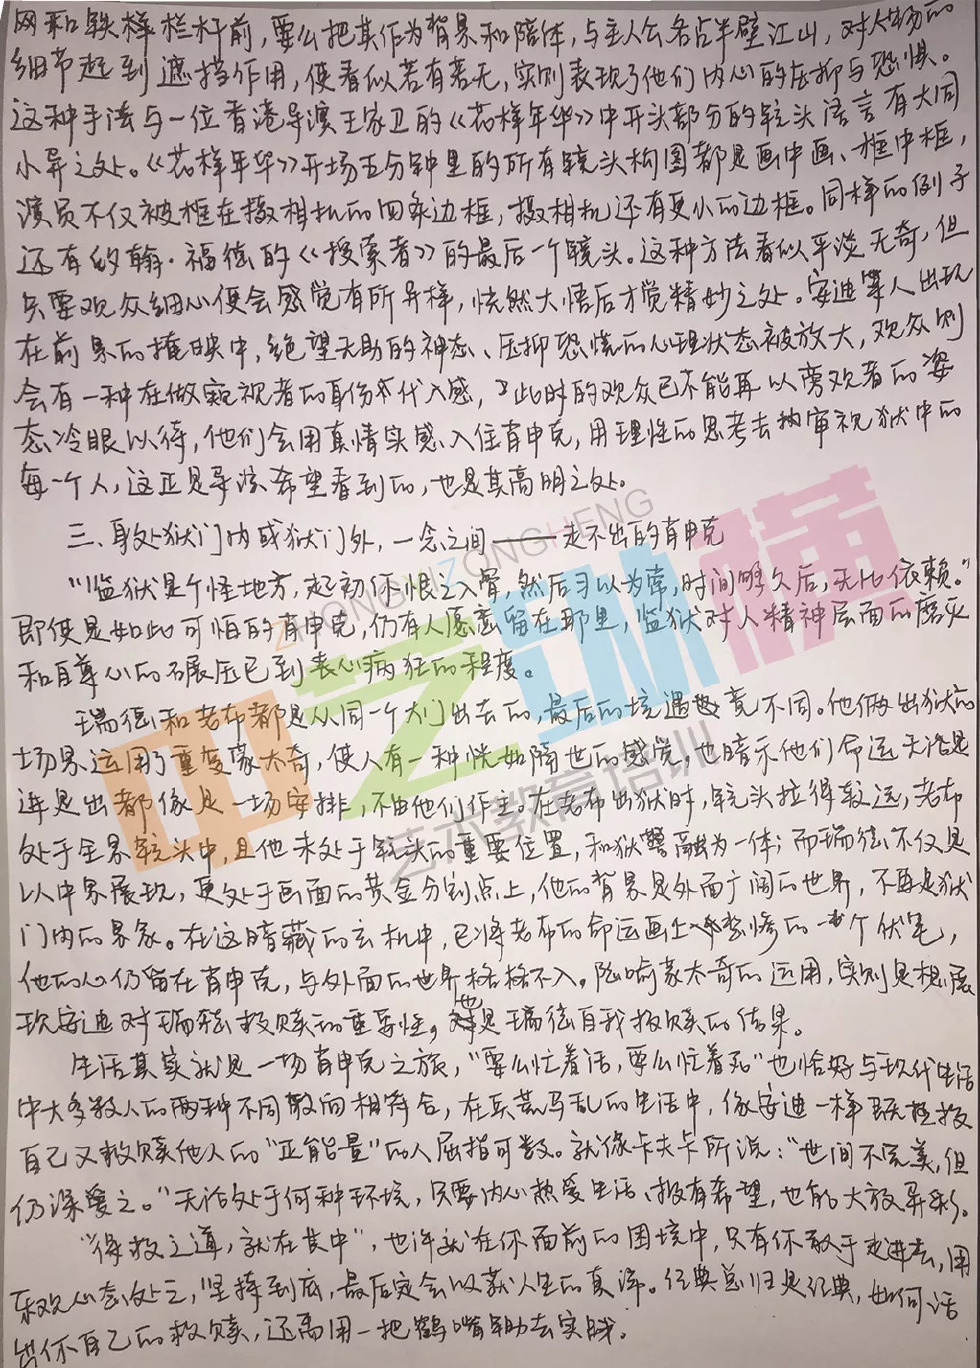 网和铁栏杆前，要么把其作为背景和陪体，与主人公各占半壁江山，对人物的
细节起到遮挡作用，使看似若有若无，实则表现了他们内心的压抑与恐惧。
这种手法与一位香港导演王家卫的《花样年华》中开头部分的镜头语言有大同
小异之处。《花样年华》开场五分钟里的所有镜头构图都是画中画、框中框，
演员不仅被框在摄相机的四条边框，摄相机还有更小的边框。同样的例子
还有约翰·福德的《搜索者》的最后一个镜头。这种方法看似平淡无奇，但
只要观众细心便会感觉有所异样，恍然大悟后才觉精妙之处。安迪等人出现
在前景的掩映中，绝望无助的神态、压抑恐慌的心理状态被放大，观众则
会有一种在做窥视者的身份代入感，此时的观众已不能再以旁观者的姿
态冷眼以待，他们会用真情实感入住肖申克，用理性的思考去审视狱中的
每一个人，这正是导演希望看到的，也是其高明之处。
三、身处狱门内或狱门外，一念之间——走不出的肖申克
“监狱是个怪地方，起初你恨之入骨，然后习以为常，时间够久后，无比依赖。”
即使是如此可怕的肖申克，仍有人愿意留在那里，监狱对人精神层面的磨灭
和自尊心的碾压已到丧心病狂的程度。
瑞德和老布都是从同一个大门出去的，最后的境遇竟不同。他俩出狱的
场景运用了重复蒙太奇，使人有一种恍如隔世的感觉，也暗示他们命运无论是
进是出都像是一场安排，不由他们作主。在老布出狱时，镜头拉得较远，老布
处于全景镜头中，且他未处于镜头的重要位置，和狱警融为一体；而瑞德不仅是
以中景展现，更处于画面的黄金分割点上，他的背景是外面广阔的世界，不再是狱
门内的景象。在这暗藏的玄机中，已将老布的命运画上悲惨的一个伏笔，
他的心仍留在肖申克，与外面的世界格格不入。隐喻蒙太奇的运用，实则是想展
现安迪对瑞德救赎的重要性，也是瑞德自我救赎的结果。
生活其实就是一场肖申克之旅，“要么忙着活，要么忙着死”也恰好与现代生活
中大多数人的两种不同散向相符合，在兵荒马乱的生活中，像安迪一样既拯救
自己又救赎他人的“正能量”的人屈指可数。就像卡夫卡所说：“世间不完美，但
仍深爱之。”无论处于何种环境，只要内心热爱生活、报有希望，也能大放异彩。
“得救之道，就在其中”，也许就在你面前的困境中，只有你敢于走进去，用
乐观心态处之，坚持到底，最后定会收获人生的真谛。经典总归是经典，如何活
出你自己的救赎，还需用一把鹤嘴锄去实践。
ZHONGYIZONGHENG
中艺纵横
艺术教育培训